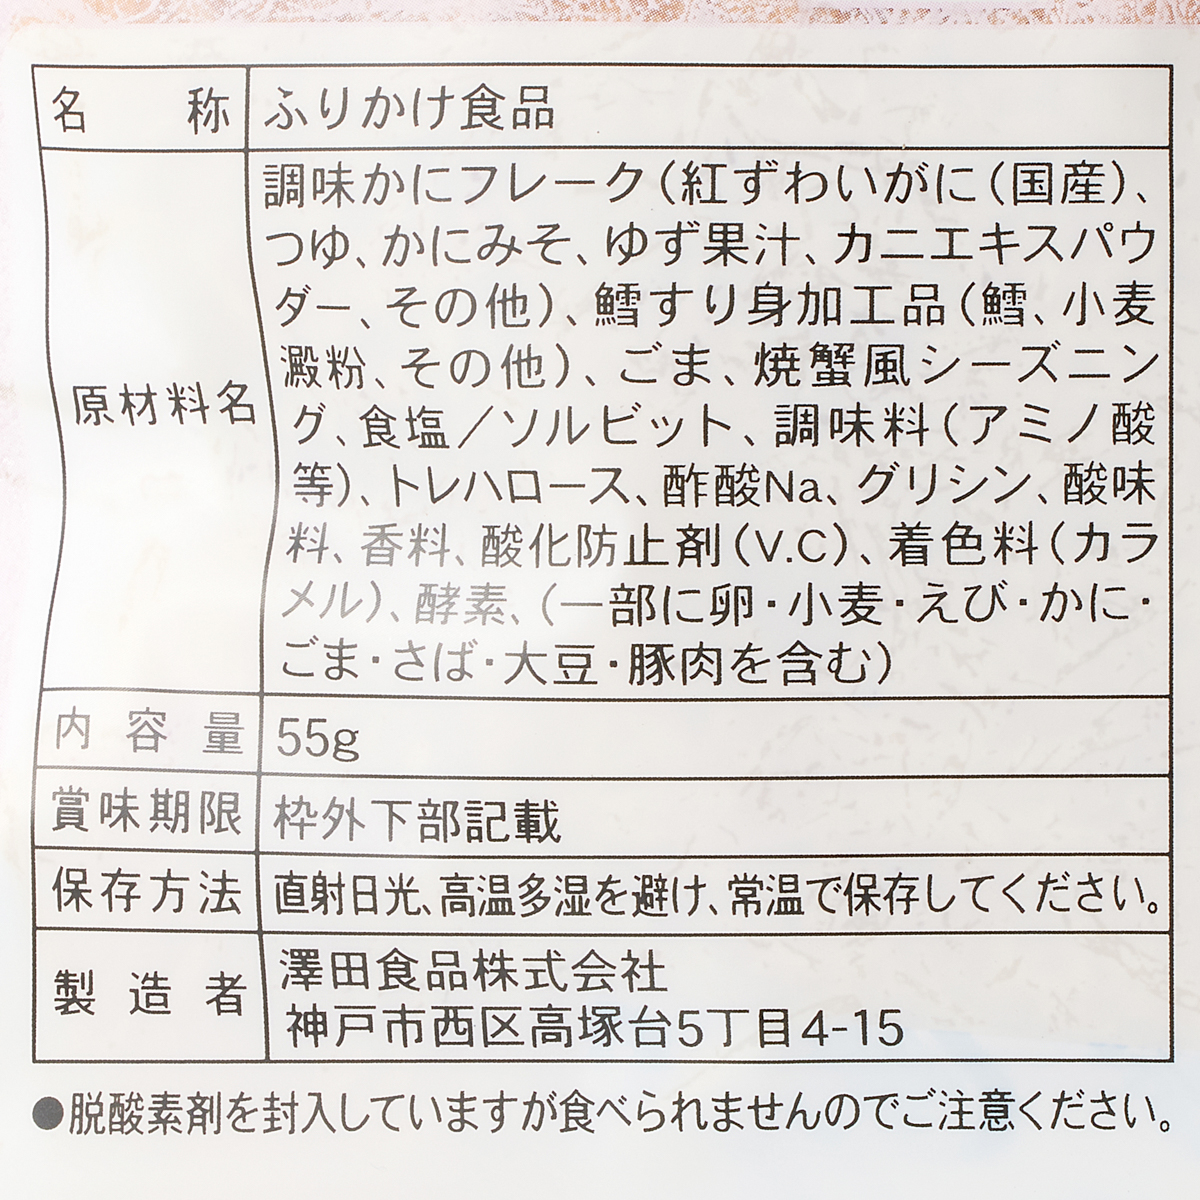 名称 ふりかけ食品
原材料名 調味かにフレーク(紅ずわいがに(国産)、
つゆ、かにみそ、ゆず果汁、カニエキスパウ
ダー、その他)、鱈すり身加工品(鱈、小麦
澱粉、その他)、ごま、焼蟹風シーズニン
グ、食塩/ソルビット、調味料(アミノ酸
等)、トレハロース、酢酸Na、グリシン、酸味
料、香料、酸化防止剤(V.C)、着色料(カラ
メル)、酵素、(一部に卵・小麦・えび・かに・
ごま・さば・大豆・豚肉を含む)
内容量 55g
賞味期限 枠外下部記載
保存方法 直射日光、高温多湿を避け、常温で保存してください。
製造者 澤田食品株式会社
神戸市西区高塚台5丁目4-15
●脱酸素剤を封入していますが食べられませんのでご注意ください。